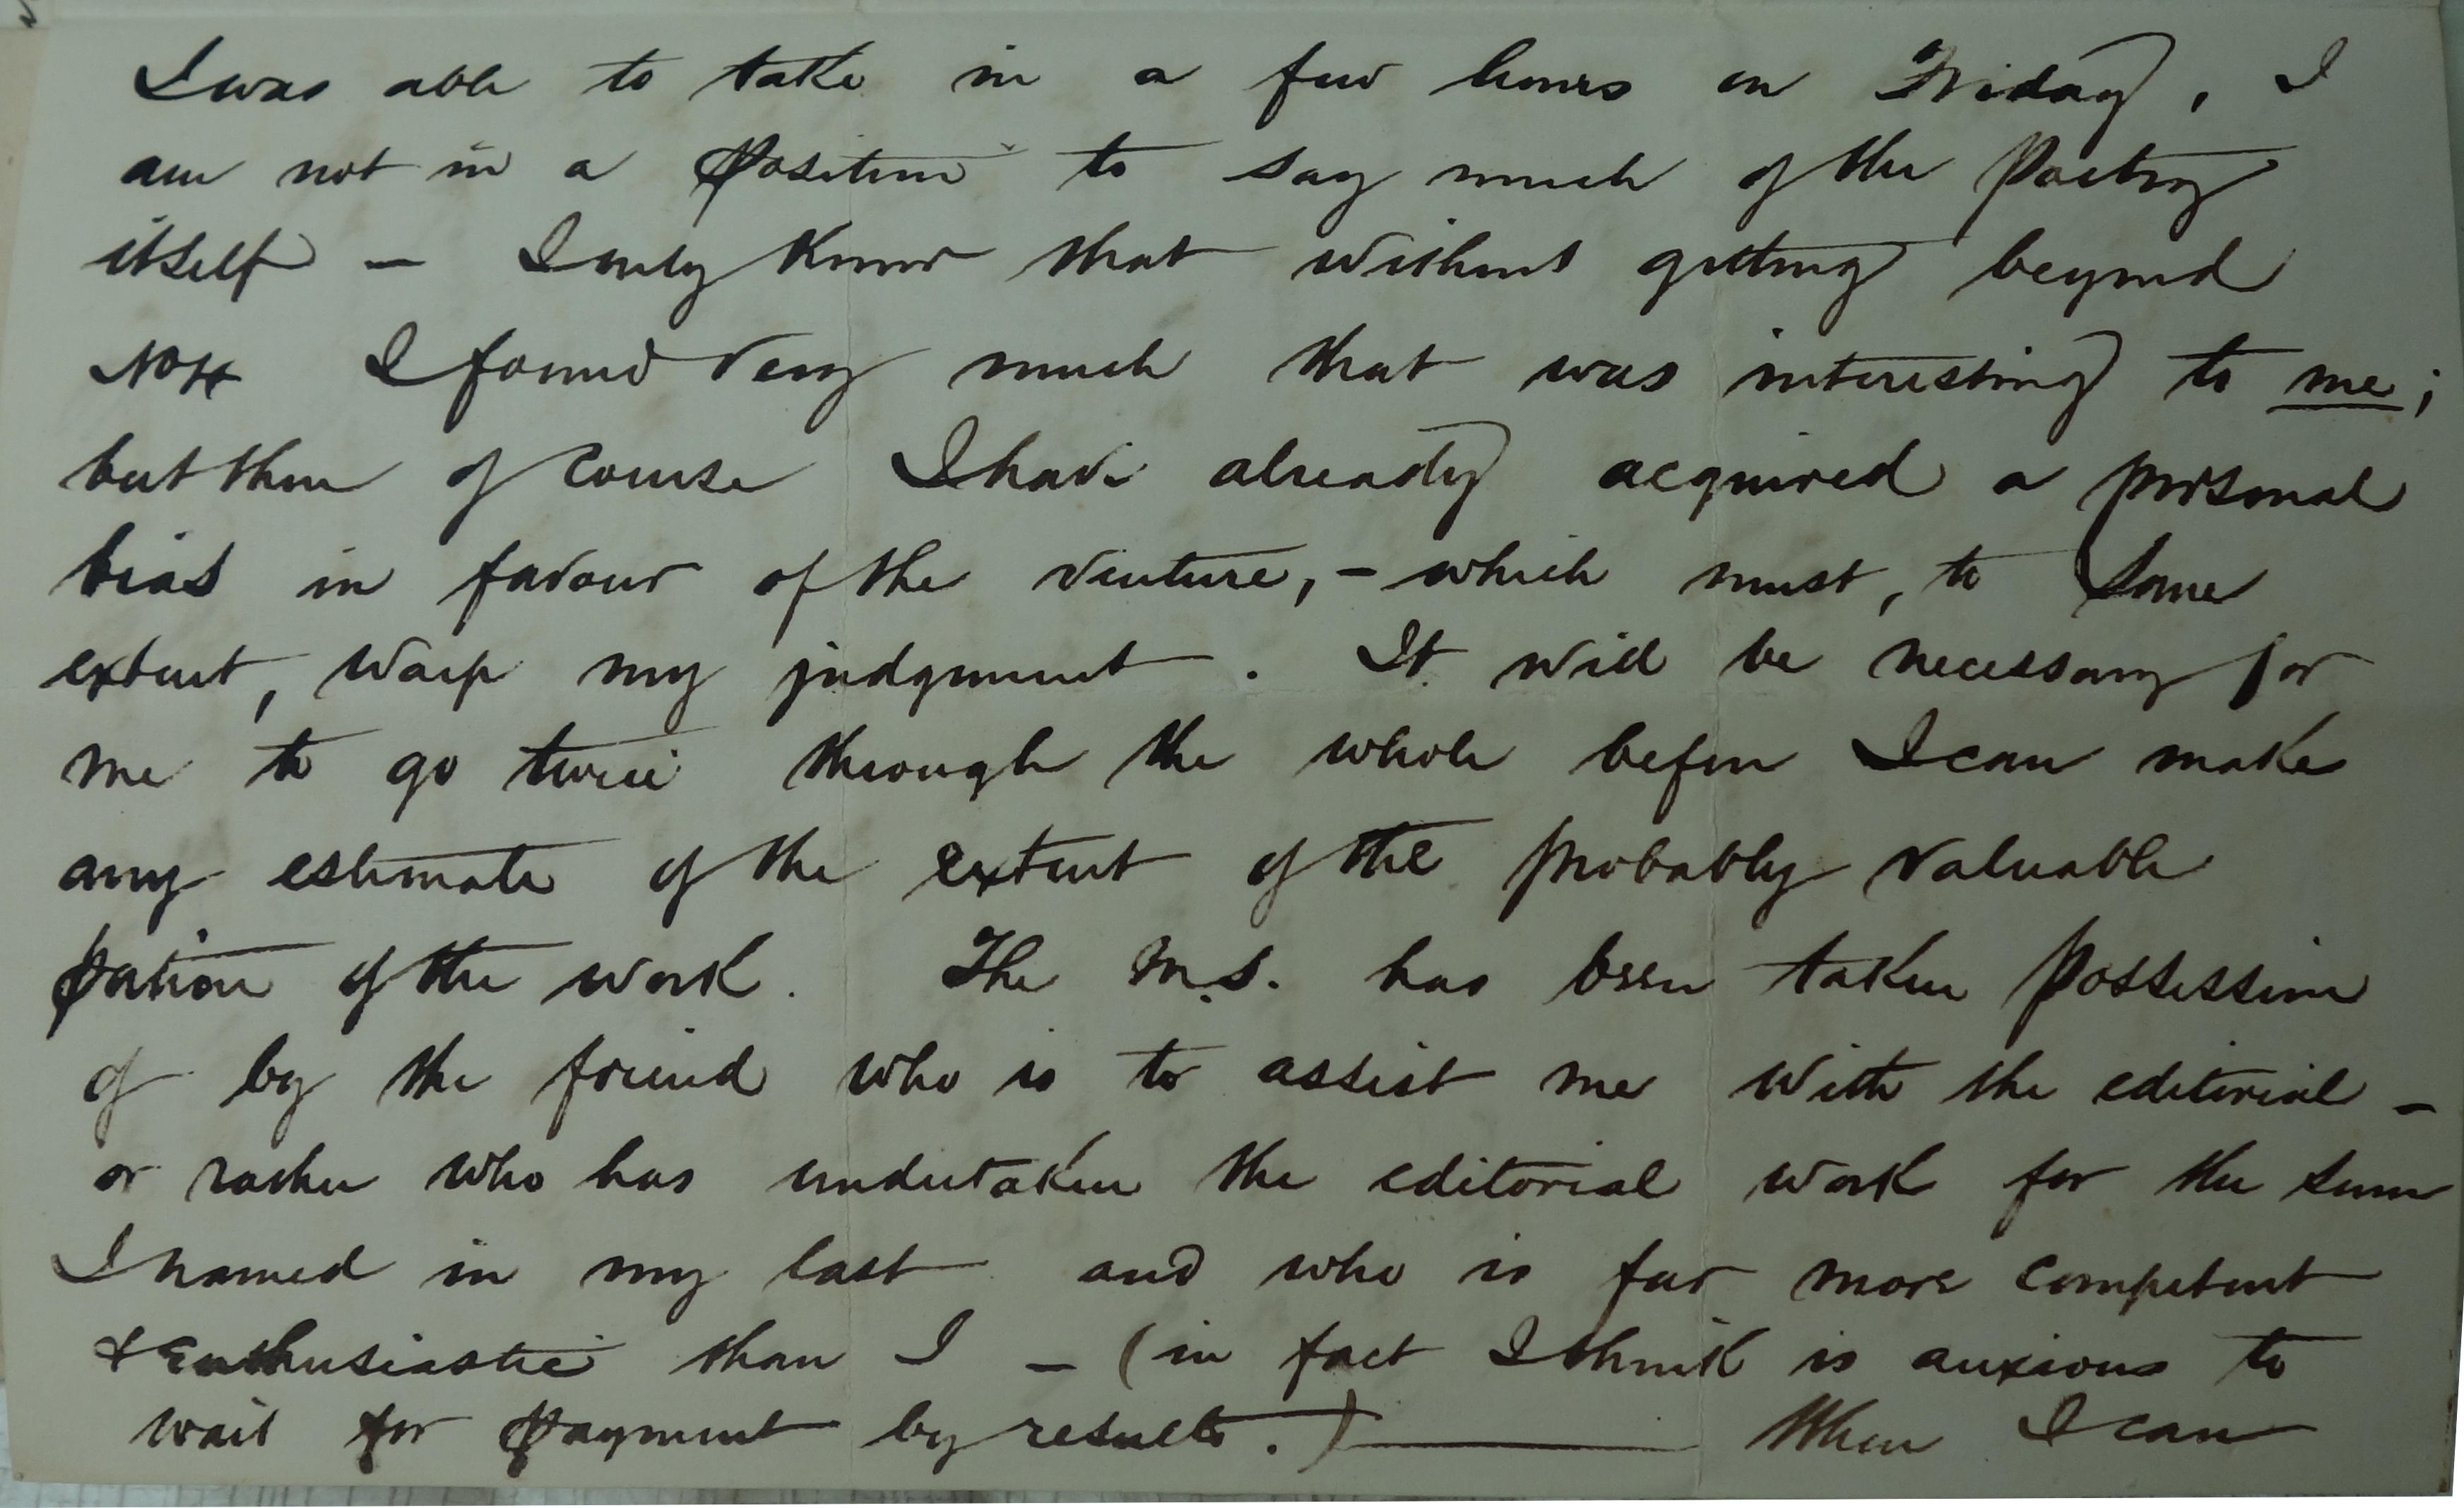 I was able to take in a few hours on Friday, I
am not in a position to say much of the Poetry
itself — I only know that without getting beyond
I found very much that was interesting to me;
but then of course I have already acquired a personal
bias in favour of the venture, – which must, to some
extent, warp my judgment. It will be necessary for
me to go twice through the whole before I can make
any estimate of the extent of the probably valuable
portion of the work. The M.S. has been taken possession
of by the friend who is to assist me with the editorial –
or rather who has undertaken the editorial work for the sum
I named in my last and who is far more competent
& enthusiastic than I – (in fact I think is anxious to
wait for payment by results.) — When I can